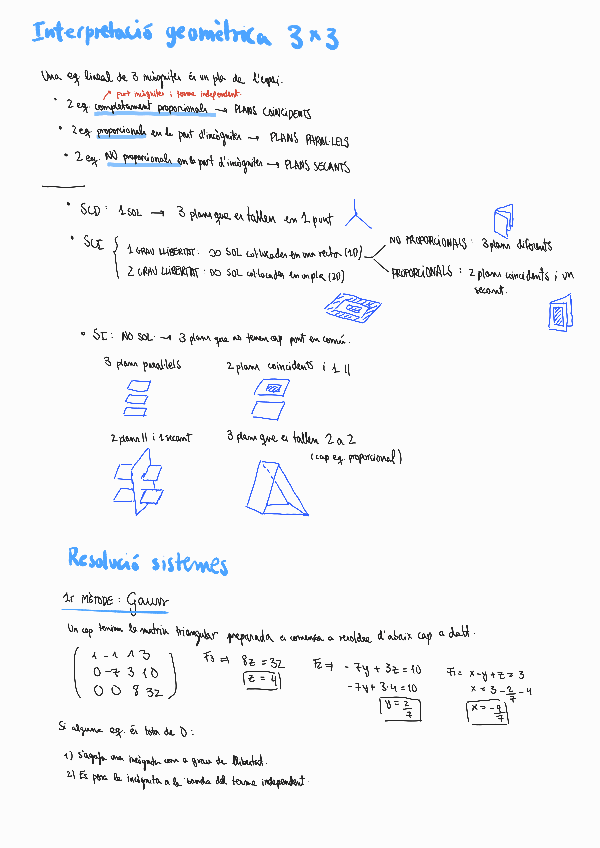 Interpretació geomètrica 3×3
Una eq. lineal de 3 incògnites és un pla de l'espai.
part incògnites i terme independent.
• 2 eq. completament proporcionals → PLANS COINCIDENTS
• 2 eq. proporcionals en la part d'incògnites → PLANS PARAL·LELS
• 2 eq. NO proporcionals en la part d'incògnites → PLANS SECANTS
• SCD: 1 SOL → 3 plans que es tallen en 1 punt
• SCI
1 GRAU LLIBERTAT: ∞ SOL col·locades en una recta (1D)
2 GRAU LLIBERTAT: ∞ SOL col·locades en un pla (2D)
NO PROPORCIONALS: 3 plans diferents
PROPORCIONALS: 2 plans coincidents i un
secant.
• SI: NO SOL → 3 plans que no tenen cap punt en comú.
3 plans paral·lels
2 plans coincidents i 1 //
2 plans // i 1 secant
3 plans que es tallen 2 a 2
(cap eq. proporcional)
Resolució sistemes
1r MÈTODE: Gauss
Un cop tenim la matriu triangular preparada es comença a resoldre d'abaix cap a dalt.
1 -1 1 3
0 -7 3 10
0 0 8 32
F3 ⇒ 8z = 32
z = 4
F2 ⇒ -7y + 3z = 10
-7y + 3·4 = 10
y = 2/7
F1 = x - y + z = 3
x = 3 - 2/7 - 4
x = -9/7
Si alguna eq. és tota de 0:
1) S'agafa una incògnita com a grau de llibertat.
2) Es posa la incògnita a la banda del terme independent.